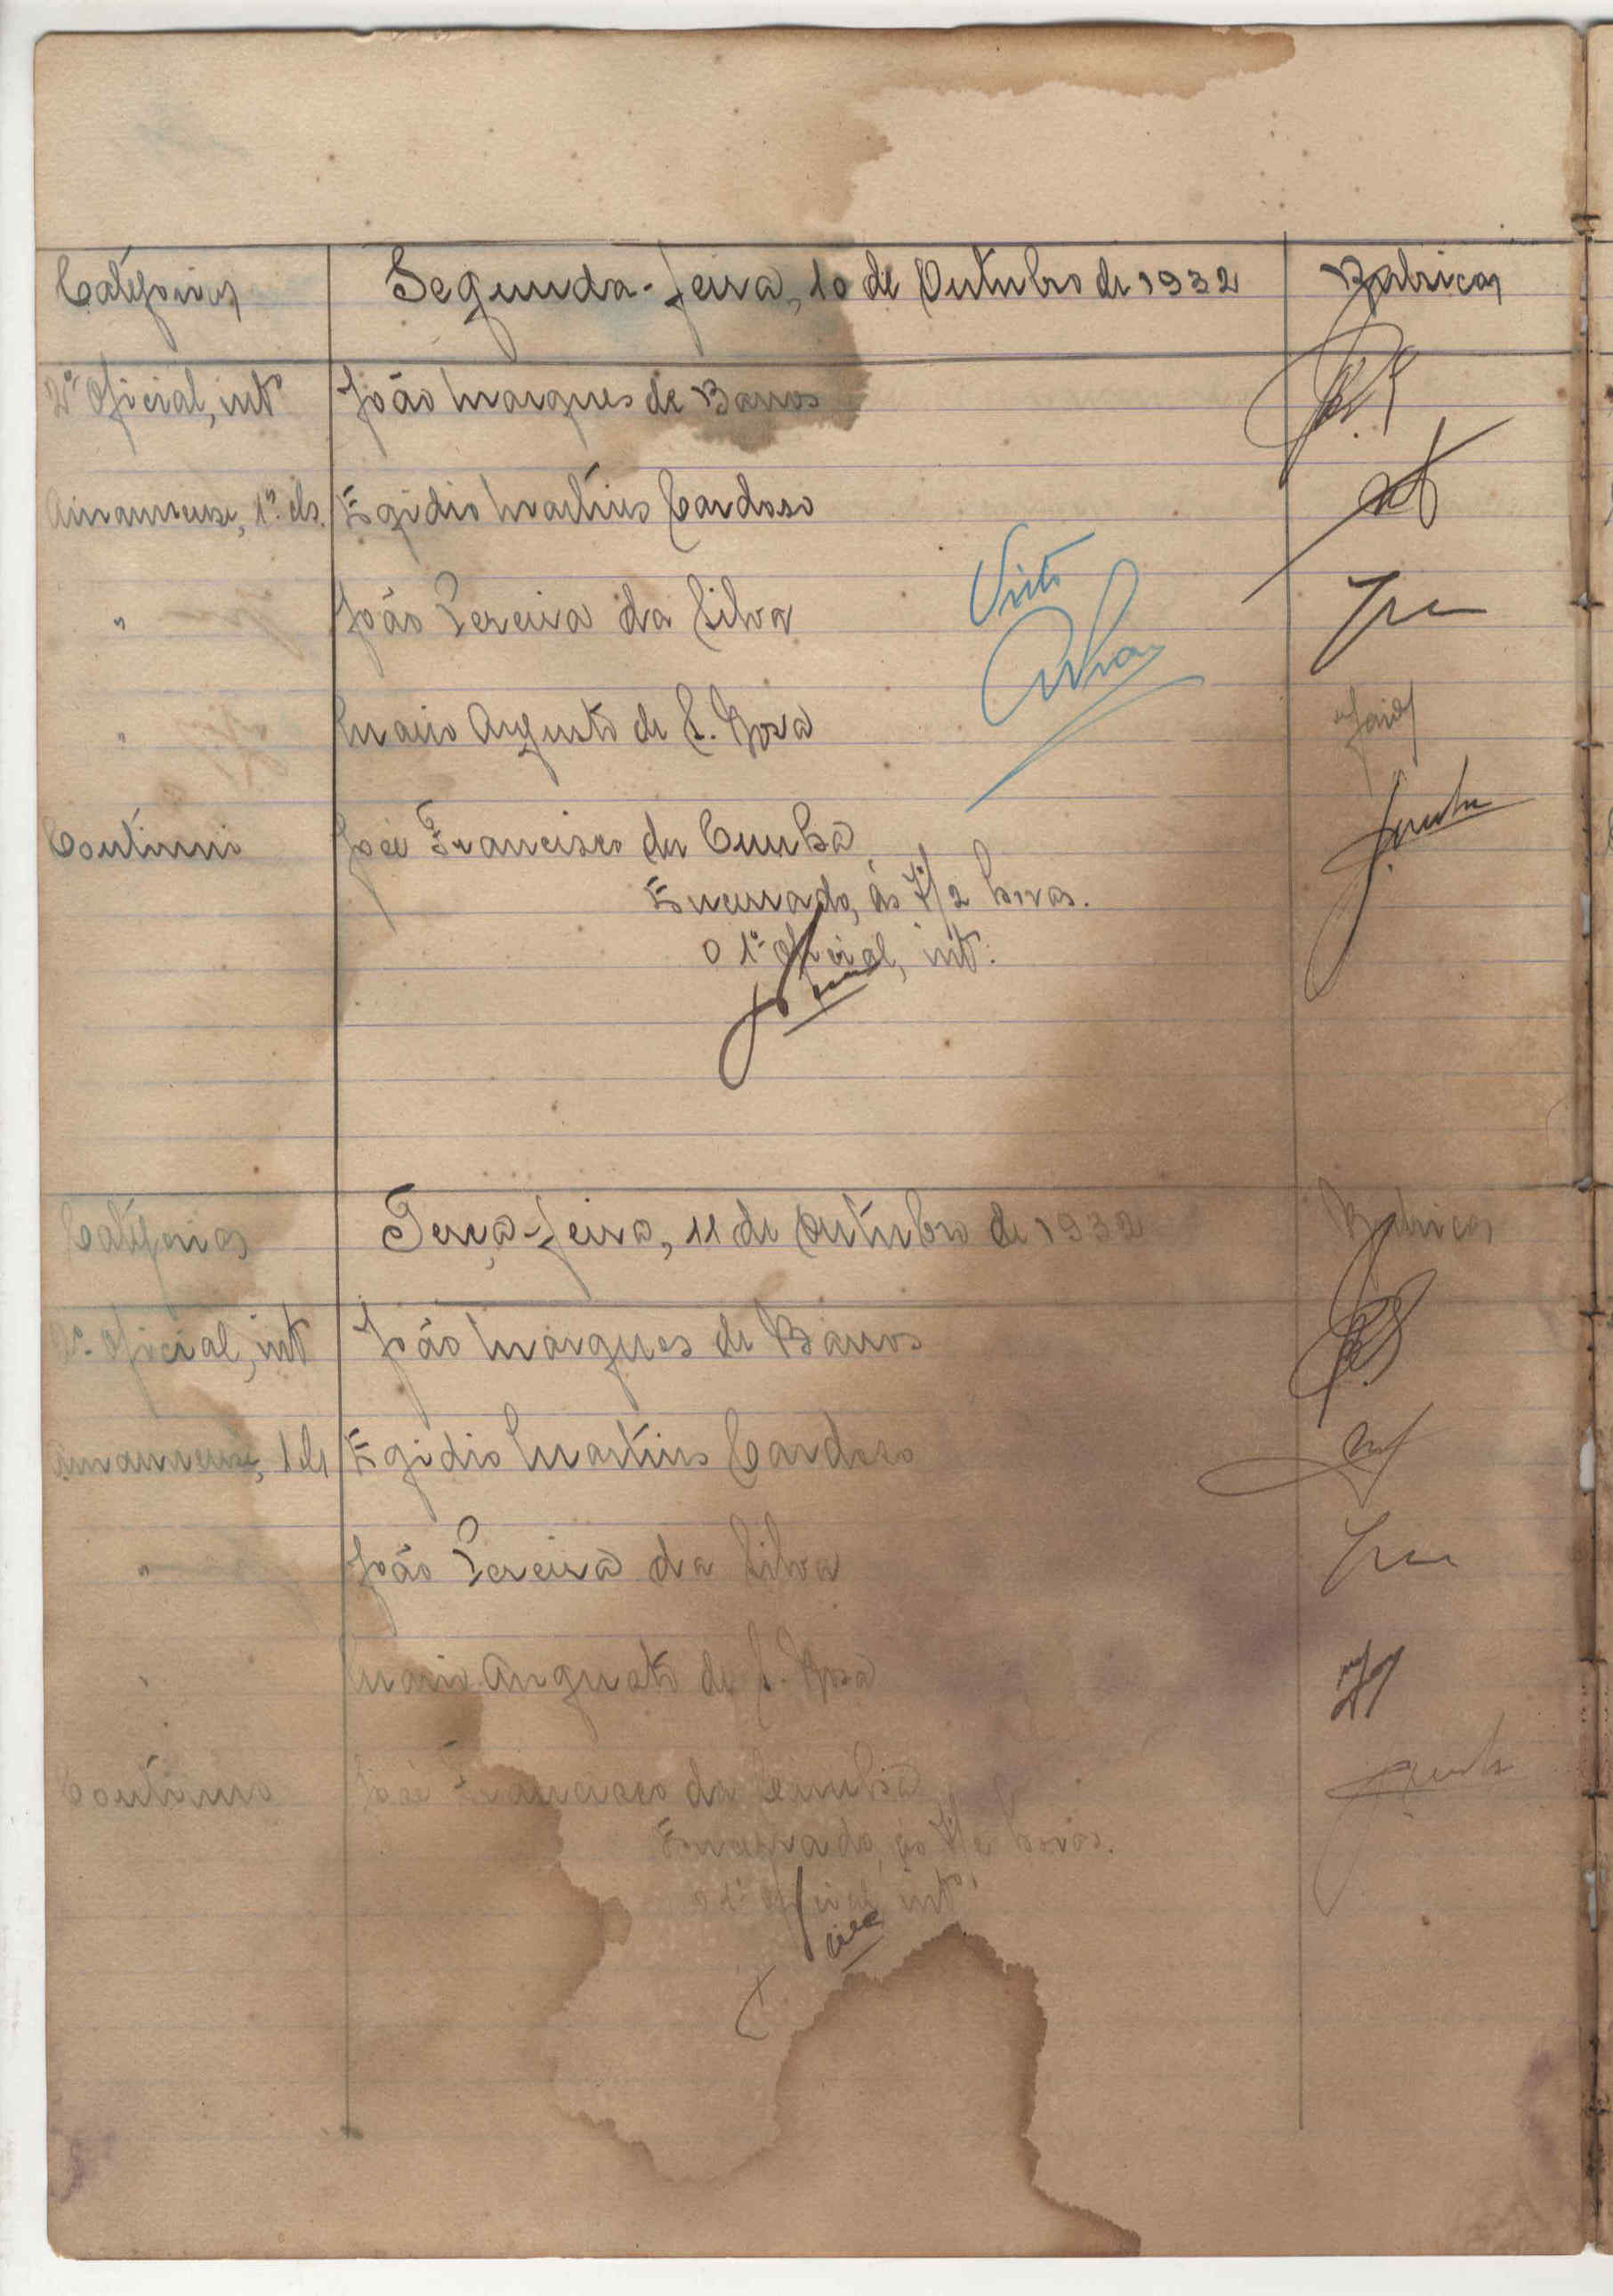 Categorias Segunda-feira, 10 de Outubro de 1932 Rubricas
2º Oficial, intº João Marques de Barros
Amanuense, 1ª cls. Egidio Martins Cardoso
" João Pereira da Silva
Visto
" Mario Augusto de S. Rosa
Contínuo José Francisco da Cunha
Encerrado, ás 7 1/2 horas.
O 1º Oficial, intº.
Categorias Terça-feira, 11 de Outubro de 1932 Rubricas
2º Oficial, intº João Marques de Barros
Amanuense, 1 cls Egidio Martins Cardoso
" João Pereira da Silva
" Mario Augusto de S. Rosa
Contínuo José Francisco da Cunha
Encerrado, ás 7 1/2 horas.
O 1º Oficial, intº.